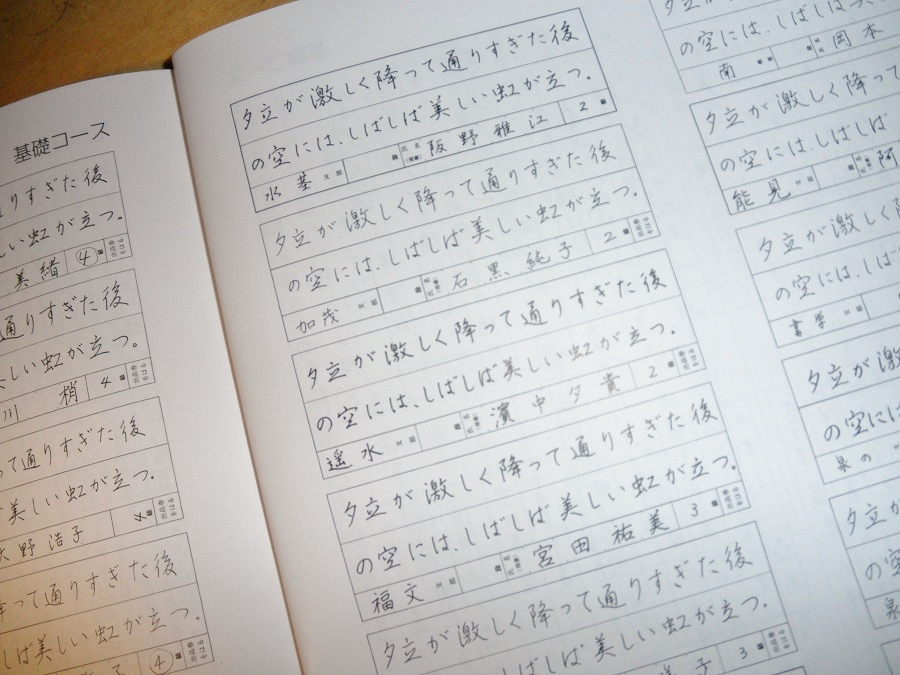 基礎コース
りすぎた後
い虹が立つ。
美緒 ④
通りすぎた後
しい虹が立つ。
川 梢 4
って通りすぎた後
美しい虹が立つ。
野 浩子 4
って通りすぎた後
しば美しい虹が立つ。
子 ④
夕立が激しく降って通りすぎた後
の空には、しばしば美しい虹が立つ。
水茎 支部 段 氏名 阪野雅江 2 級
夕立が激しく降って通りすぎた後
の空には、しばしば美しい虹が立つ。
加茂 支部 段 氏名 石黒純子 2 級
夕立が激しく降って通りすぎた後
の空には、しばしば美しい虹が立つ。
遥水 支部 段 氏名 濱中夕貴 2 級
夕立が激しく降って通りすぎた後
の空には、しばしば美しい虹が立つ。
福文 支部 段 氏名 宮田祐美 3 級
夕立が激しく降って通りすぎた後
しばしば美しい虹が立つ。
子 3 級
の空には、しばしば
南 岡本
夕立が激しく降
の空には、しばしば
能見 支部 阿
夕立が激しく
の空には、しば
書学 支部
夕立が激
の空には
泉の
夕立が
の空
泉